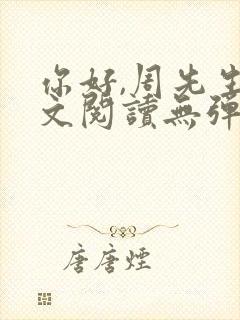 你好,周先生
文閱讀無彈
唐唐煙